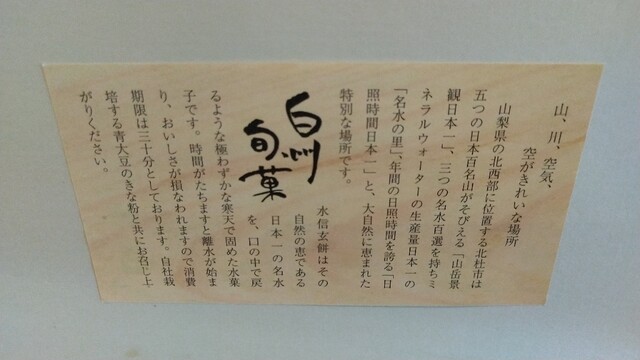 山、川、空気、
空がきれいな場所
山梨県の北西部に位置する北杜市は
五つの日本百名山がそびえる「山岳景
観日本一」、三つの名水百選を持ちミ
ネラルウォーターの生産量日本一の
「名水の里」、年間の日照時間を誇る「日
照時間日本一」と、大自然に恵まれた
特別な場所です。
白州
旬菓
水信玄餅はその
自然の恵である
日本一の名水
を、口の中で戻
るような極わずかな寒天で固めた水菓
子です。時間がたちますと離水が始ま
り、おいしさが損なわれますので消費
期限は三十分としております。自社栽
培する青大豆のきな粉と共にお召し上
がりください。